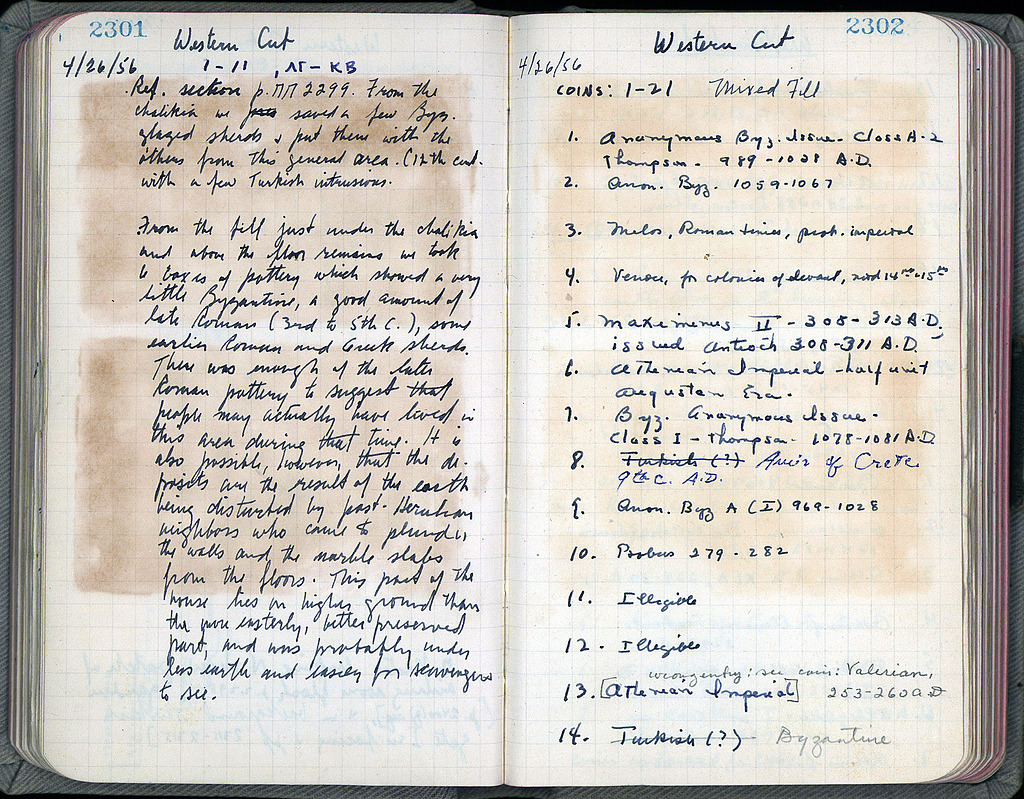 2301
Western Cut
4/26/56
1-11 , ΛΓ-ΚΒ
Ref. section p. ΠΠ 2299. From the
chalikia we saved a few Byz.
glazed sherds & put them with the
others from this general area. (12th cent.
with a few Turkish intrusions.
From the fill just under the chalikia
and above the floor remains we took
6 boxes of pottery which showed a very
little Byzantine, a good amount of
late Roman (3rd to 5th C.), some
earlier Roman and Greek sherds.
There was enough of the later
Roman pottery to suggest that
people may actually have lived in
this area during that time. It is
also possible, however, that the de-
posits are the result of the earth
being disturbed by post-Herulian
neighbors who came to plunder
the walls and the marble slabs
from the floors. This part of the
house lies on higher ground than
the more easterly, better preserved
part, and was probably under
less earth and easier for scavengers
to see.
2302
Western Cut
4/26/56
COINS: 1-21 Mixed Fill
1. Anonymous Byz. Issue - Class A-2
Thompson - 989-1028 A.D.
2. Anon. Byz. 1059-1067
3. Melos, Roman times, prob. imperial
4. Venice, for colonies of Levant, mid 14th-15th
5. Maximinus II - 308-313 A.D.
issued Antioch 308-311 A.D.
6. Athenian Imperial - half unit
Augustan Era.
7. Byz. Anonymous Issue -
Class I - Thompson - 1078-1081 A.D.
8. Turkish (?) Amir of Crete
9th c. A.D.
9. Anon. Byz A (I) 969-1028
10. Probus 279-282
11. Illegible
12. Illegible
wrong entry: see coin: Valerian,
13. [Athenian Imperial] 253-260 A.D
14. Turkish (?) Byzantine